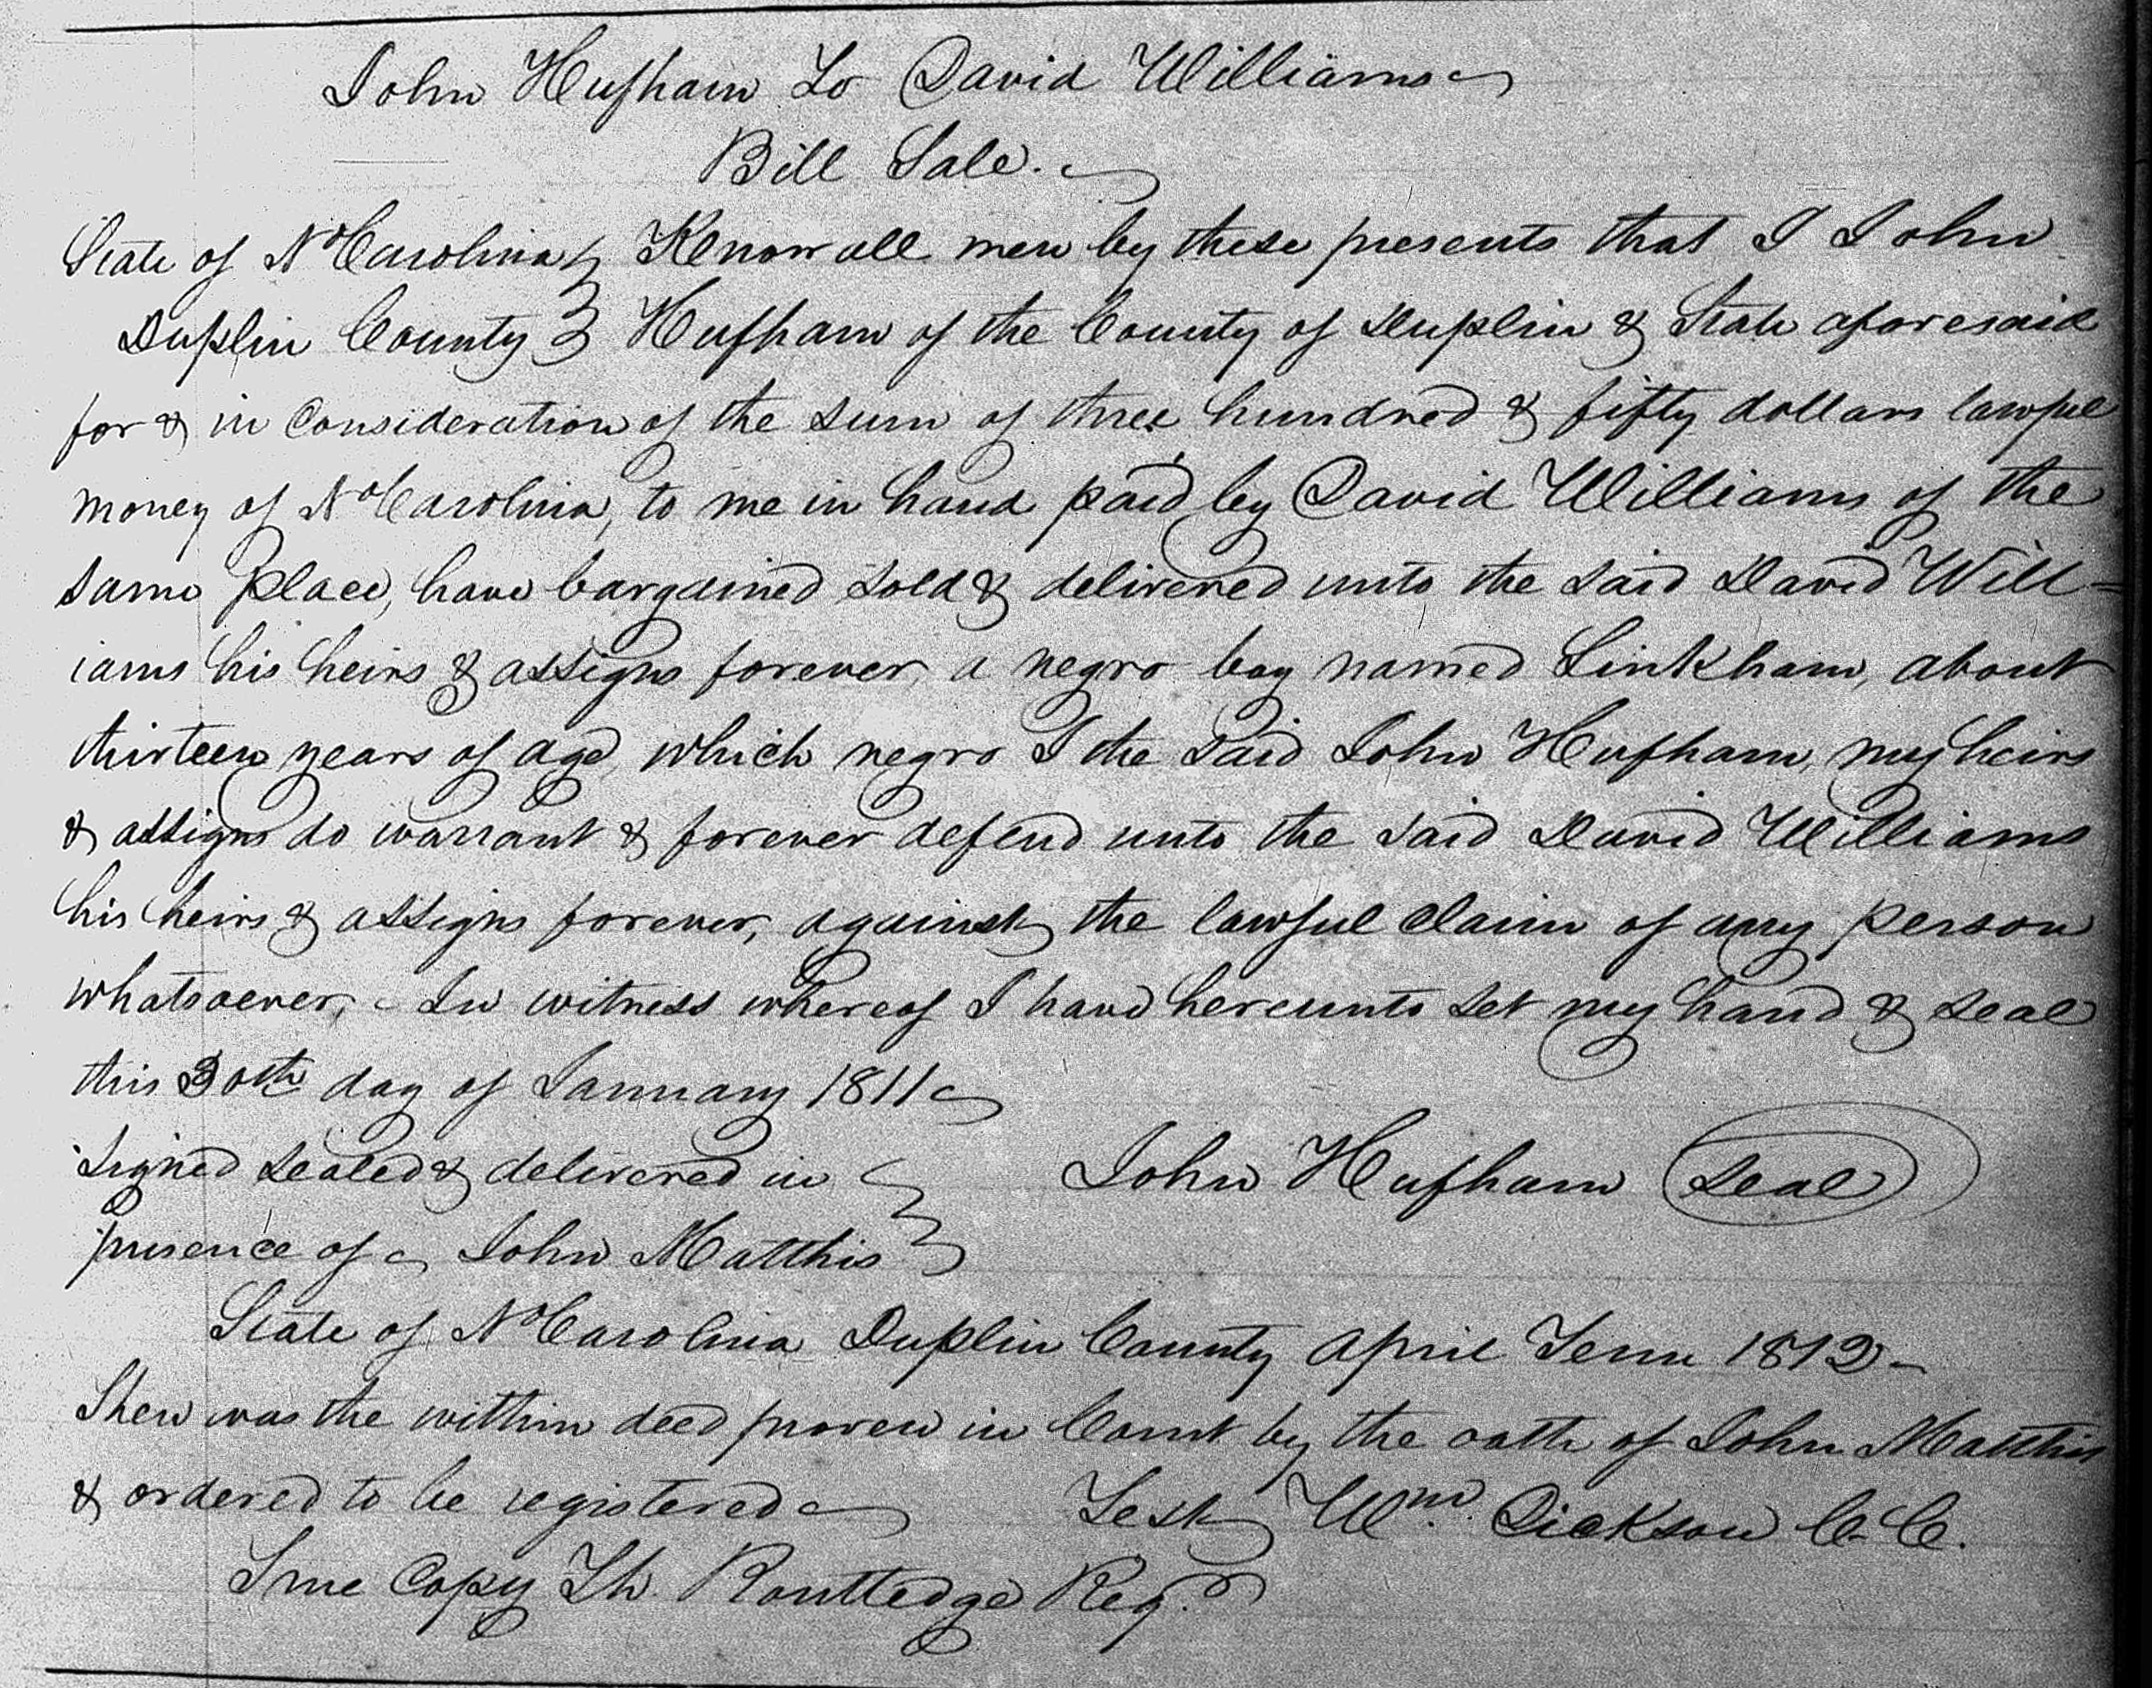 John Hufham To David Williams
Bill Sale.
State of No Carolina } Know all men by these presents that I John
Duplin County } Hufham of the County of Duplin & State aforesaid
for & in Consideration of the sum of three hundred & fifty dollars lawful
money of No Carolina, to me in hand paid by David Williams of the
same place, have bargained sold & delivered unto the said David Will=
iams his heirs & assigns forever, a negro boy named Linkham, about
thirteen years of age, which negro I the said John Hufham, my heirs
& assigns do warrant & forever defend unto the said David Williams
his heirs & assigns forever, against the lawful claim of any person
whatsoever, - In witness whereof I have hereunto set my hand & seal
this 30th day of January 1811
Signed sealed & delivered in } John Hufham Seal
presence of John Matthis }
State of No Carolina Duplin County April Term 1812
Then was the within deed proven in Court by the oath of John Matthis
& ordered to be registered Test Wm. Dickson C. C.
True Copy Th. Routledge Regr.